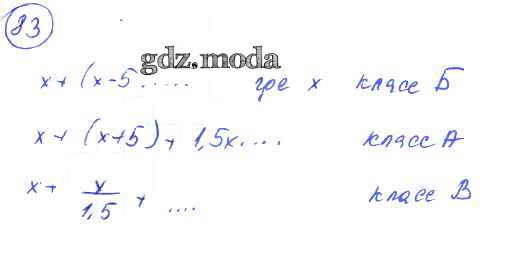 83
gdz.moda
x + (x - 5 ..... где x класс Б
x + (x + 5) + 1,5x .... класс А
x + x/1,5 + .... класс В